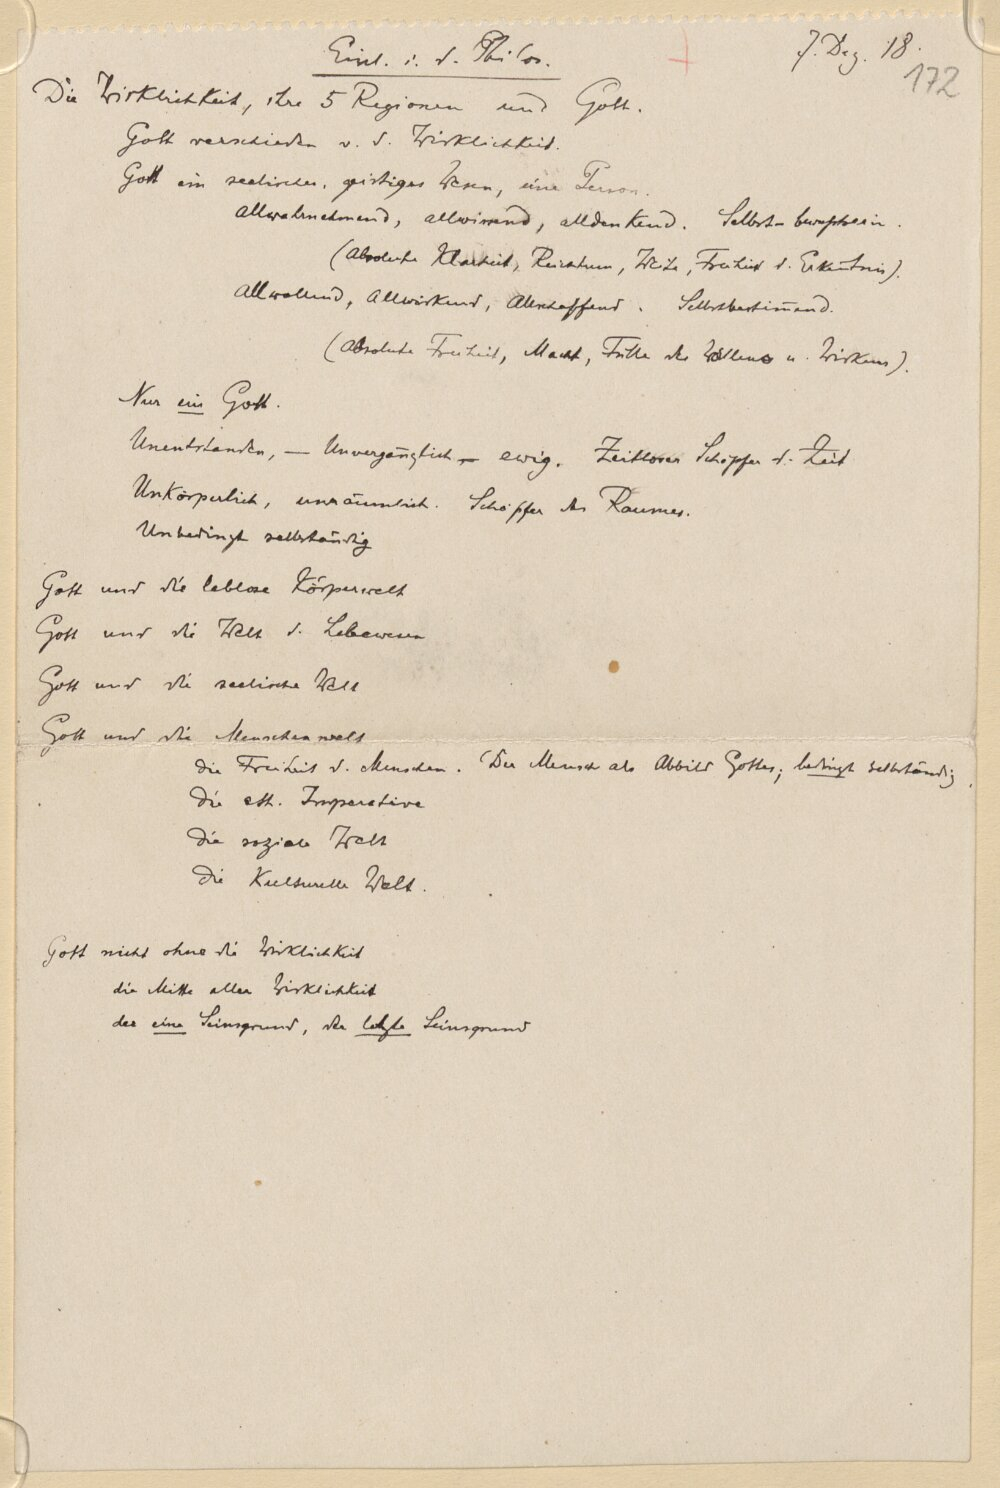 Einl. i. d. Philos.
7. Dez. 18.
172
Die Wirklichkeit, ihre 5 Regionen und Gott.
Gott verschieden v. d. Wirklichkeit.
Gott ein seelisches, geistiges Wesen, eine Person.
Allwahrnehmend, allwissend, alldenkend. Selbst-bewußtsein.
(Absolute Klarheit, Reichtum, Weite, Freiheit d. Erkenntnis).
Allwollend, Allwirkend, Allschaffend. Selbstbestim̅end.
(Absolute Freiheit, Macht, Fülle des Wollens u. Wirkens).
Nur ein Gott.
Unentstanden, — Unvergänglich — ewig. Zeitloser Schöpfer d. Zeit
Unkörperlich, unräumlich. Schöpfer des Raumes.
Unbedingt selbständig
Gott und die leblose Körperwelt
Gott und die Welt d. Lebewesen
Gott und die seelische Welt
Gott und die Menschenwelt
die Freiheit d. Menschen. (Der Mensch als Abbild Gottes; bedingt selbständig.
die eth. Imperative
die soziale Welt
die Kulturelle Welt.
Gott nicht ohne die Wirklichkeit
die Mitte aller Wirklichkeit
der eine Seinsgrund, der letzte Seinsgrund